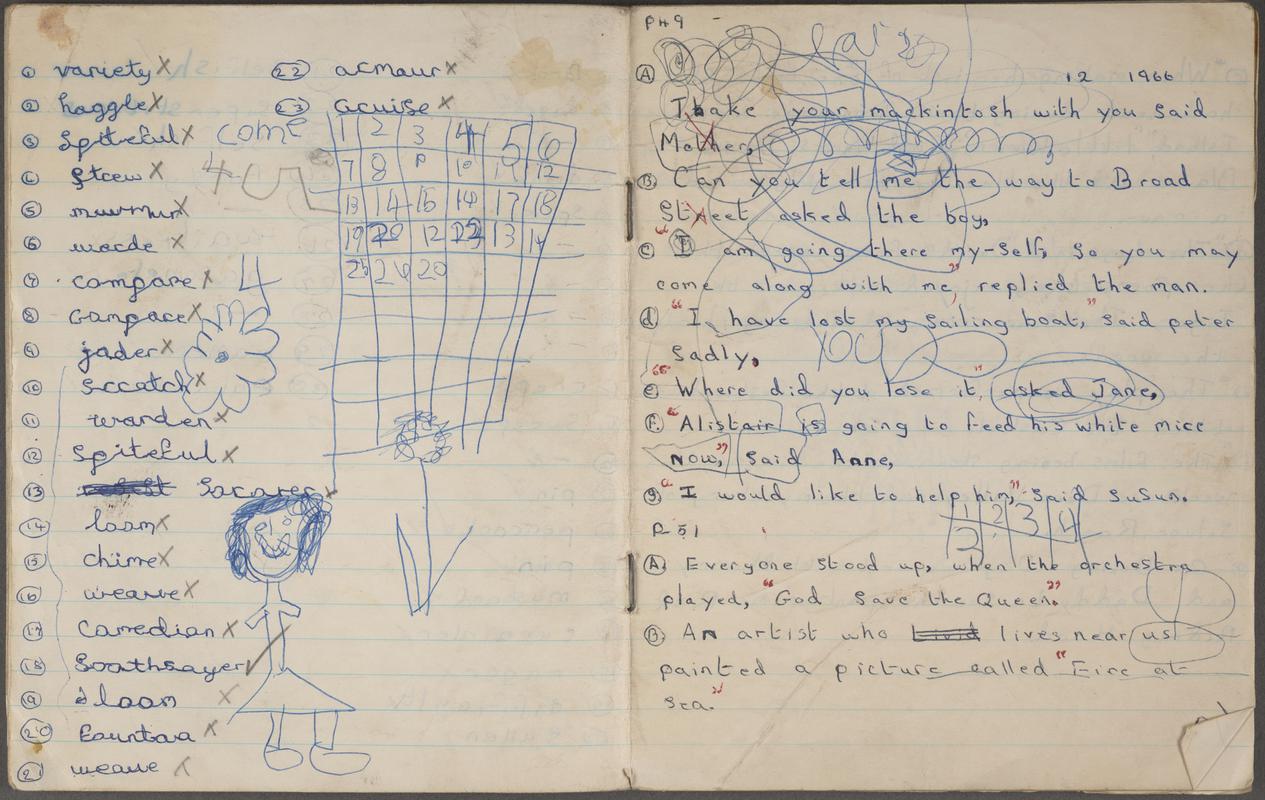 ① variety x
② haggle x
③ Spiteful x
④ Strew x
⑤ murmur x
⑥ warde x
⑦ compare x
⑧ Compare x
⑨ jader x
⑩ Scratch x
⑪ warden x
⑫ Spiteful x
⑬
⑭ loom x
⑮ chime x
⑯ weave x
⑰ Comedian x
⑱ Soothsayer ✓
⑲ gloom x
⑳
㉑ weave x
㉒ armour x
㉓ cruise x
come
4
1 2 3 4 5 6
7 8 9 10 11 12
13 14 15 14 17 18
19 20 12 22 13 14
25 26 20
P49
A 12 1966
Take your mackintosh with you said
Mother,
B. Can you tell me the way to Broad
Street asked the boy,
C "I am going there my-self, so you may
come along with me," replied the man.
d "I have lost my Sailing boat," said peter
Sadly.
e "Where did you lose it," asked Jane,
F. "Alistair is going to feed his white mice
now," Said Anne,
g "I would like to help him," Said Susun.
1 2 3 4
P 51
A. Everyone stood up, when the orchestra
played, "God Save the Queen."
B. An artist who lives near us
painted a picture called "Fire at
sea."